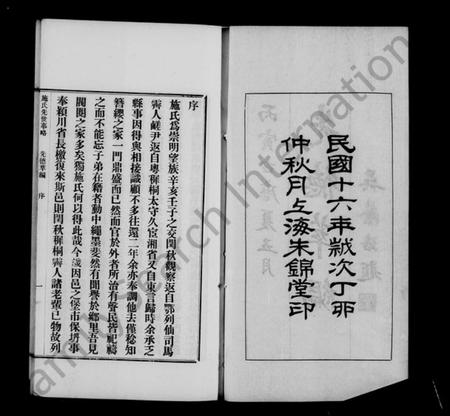 民國十六年歲次丁卯
仲秋月上海朱錦堂印
序
施氏為崇明望族辛亥壬子之交閏秋觀察返自鄂列仙司馬
霽人鹺尹返自粵穉桐太守久宦湘省又自東言歸時余承乏
縣事因得與相接識顧不多往還二年余亦奉調他去僅稔知
簪纓之家一門鼎盛而已然而官於外者所治有聲民皆祀禱
之而不能忘子弟在籍者動中繩墨斐然有聞譽於鄉里吾見
閥閱之家多矣獨施氏何以得此哉今歲因邑之堡市保坍事
奉潁川省長檄復來斯邑則閏秋穉桐霽人諸老輩已物故列
施氏先世事略
先德彙編
序
一